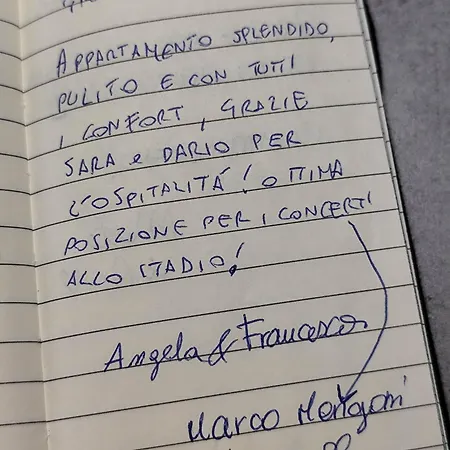 APPARTAMENTO SPLENDIDO,
PULITO E CON TUTTI
I CONFORT, GRAZIE
SARA e DARIO PER
L'OSPITALITÁ! OTTIMA
POSIZIONE PER I CONCERTI
ALLO STADIO!
Angela & Francesco
Marco Mengoni